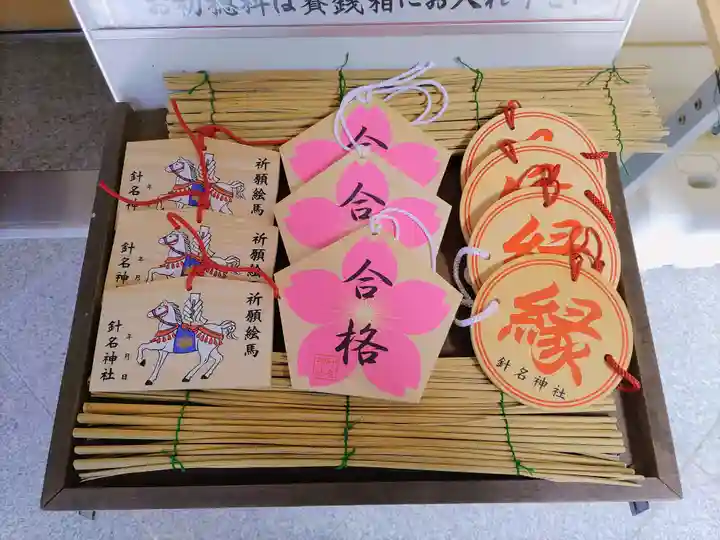 お初穂料は賽銭箱にお入れ下さい
祈願絵馬
年
針名神
祈願絵馬
年月
針名神
祈願絵馬
年月日
針名神社
合
合
合格
縁
縁
針名神社